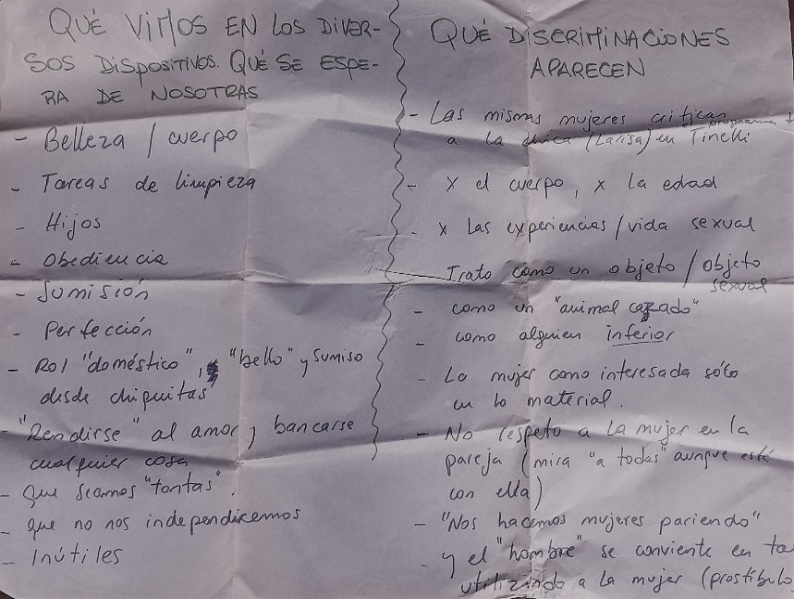 QUÉ VIMOS EN LOS DIVER-
SOS DISPOSITIVOS. QUÉ SE ESPE-
RA DE NOSOTRAS
- Belleza / cuerpo
- Tareas de limpieza
- Hijos
- Obediencia
- Sumisión
- Perfección
- Rol "doméstico", "bello" y sumiso
desde chiquitas
- "Rendirse" al amor y bancarse
cualquier cosa
- Que seamos "tontas".
- que no nos independicemos
- Inútiles
QUÉ DISCRIMINACIONES
APARECEN
- Las mismas mujeres critican
a la chica (Larisa) en programa Tinelli
- x el cuerpo, x la edad
- x las experiencias / vida sexual
Trato como un objeto / objeto
sexual
- como un "animal cazado"
- como alguien inferior
- La mujer como interesada sólo
en lo material.
- No respeto a la mujer en la
pareja (mira "a todas" aunque esté
con ella)
- "Nos hacemos mujeres pariendo"
y el "hombre" se convierte en ta
utilizando a la mujer (prostíbulo